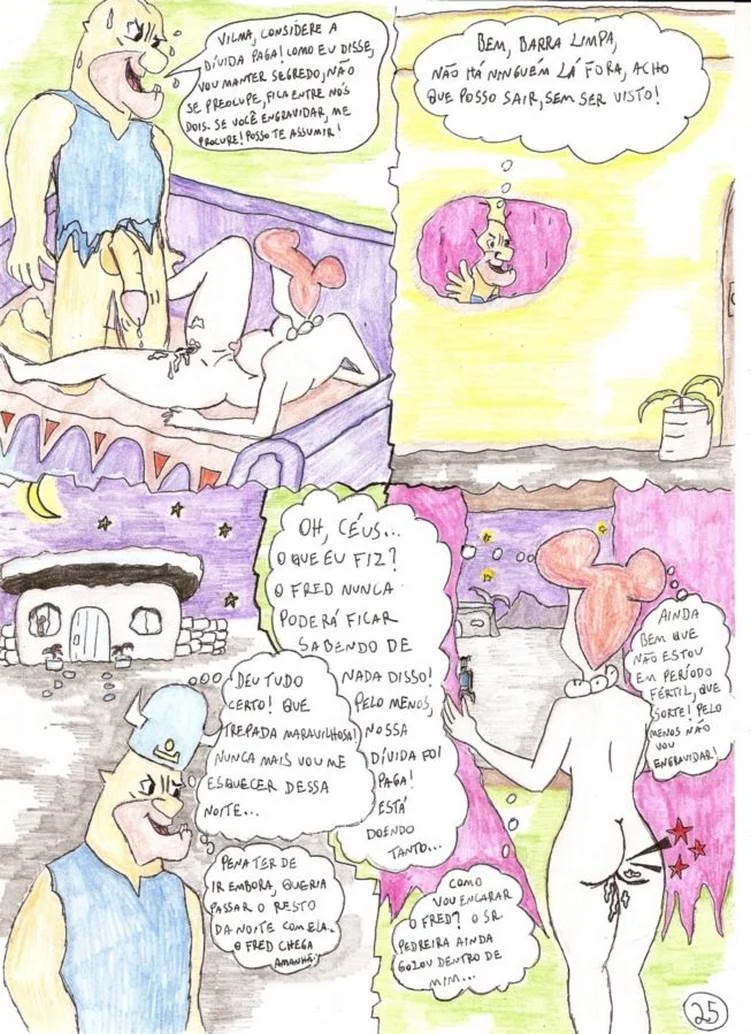 VILMA, CONSIDERE A
DÍVIDA PAGA! COMO EU DISSE,
VOU MANTER SEGREDO, NÃO
SE PREOCUPE, FICA ENTRE NÓS
DOIS. SE VOCÊ ENGRAVIDAR, ME
PROCURE! POSSO TE ASSUMIR!
BEM, BARRA LIMPA,
NÃO HÁ NINGUÉM LÁ FORA, ACHO
QUE POSSO SAIR, SEM SER VISTO!
DEU TUDO
CERTO! QUE
TREPADA MARAVILHOSA!
NUNCA MAIS VOU ME
ESQUECER DESSA
NOITE...
PENA TER DE
IR EMBORA, QUERIA
PASSAR O RESTO
DA NOITE COM ELA.
O FRED CHEGA
AMANHÃ!
OH, CÉUS...
O QUE EU FIZ?
O FRED NUNCA
PODERÁ FICAR
SABENDO DE
NADA DISSO!
PELO MENOS,
NOSSA
DÍVIDA FOI
PAGA!
ESTÁ
DOENDO
TANTO...
AINDA
BEM QUE
NÃO ESTOU
EM PERÍODO
FÉRTIL, QUE
SORTE! PELO
MENOS NÃO
VOU
ENGRAVIDAR!
COMO
VOU ENCARAR
O FRED? O SR.
PEDREIRA AINDA
GOZOU DENTRO DE
MIM...
25